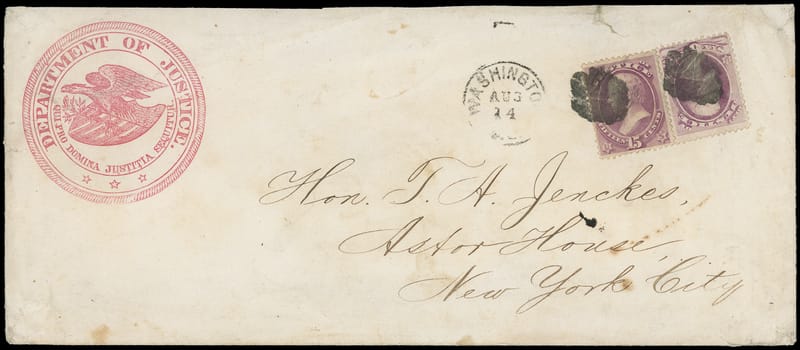 DEPARTMENT OF JUSTICE.
QUI PRO DOMINA JUSTITIA SEQUITUR.
WASHINGTO
AUG
14
15 CENTS
Hon. T. A. Jenckes,
Astor House,
New York City